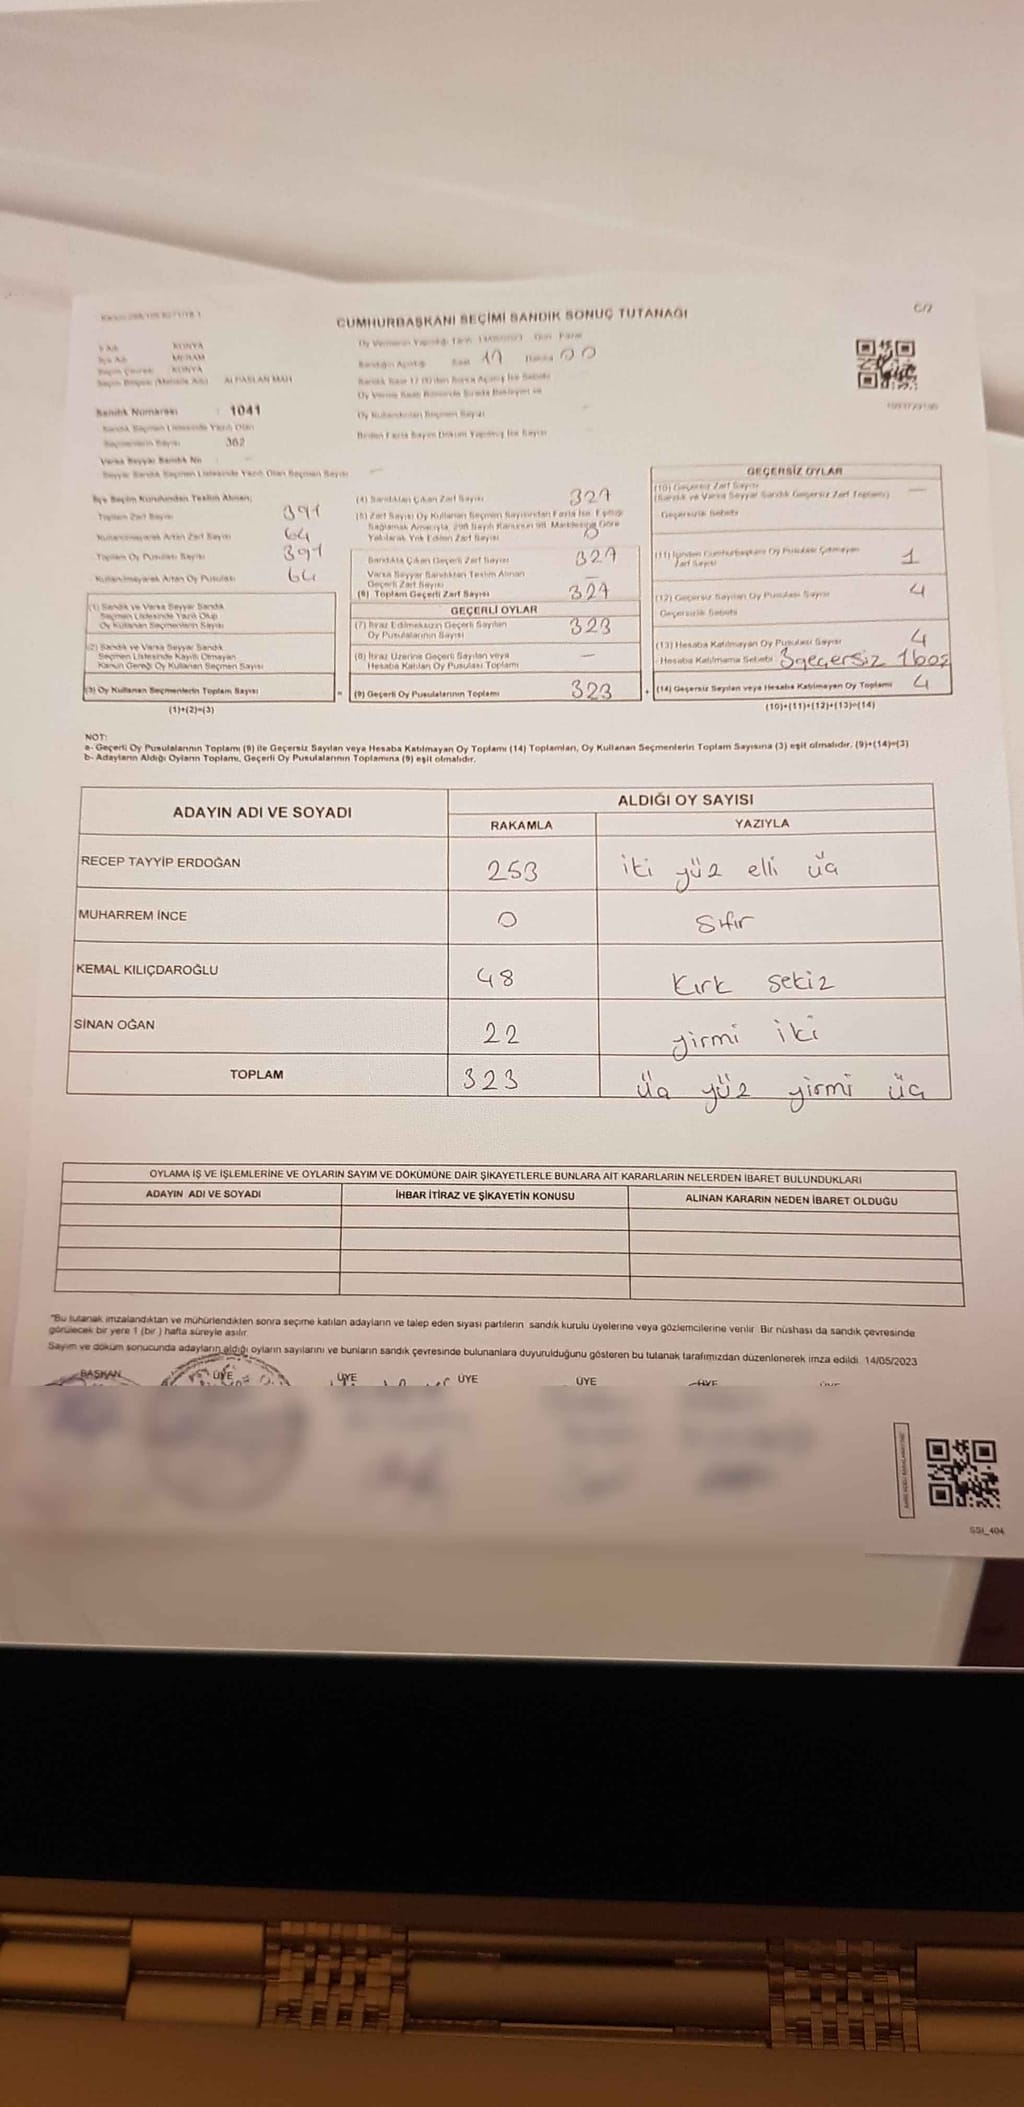 C/7
CUMHURBAŞKANI SEÇİMİ SANDIK SONUÇ TUTANAĞI
İl Adı KONYA
İlçe Adı MERAM
Seçim Çevresi KONYA
ALPASLAN MAH
Sandık Numarası : 1041
Sandık Seçmen Listesinde Yazılı Olan
Seçmenlerin Sayısı 382
Varsa Seyyar Sandık No
Seyyar Sandık Seçmen Listesinde Yazılı Olan Seçmen Sayısı
Saat 17 Dakika 00
Oy Kullandırılan Seçmen Sayısı
Birden Fazla Sayım Döküm Yapılmış İse Sayısı
İlçe Seçim Kurulundan Teslim Alınan;
Toplam Zarf Sayısı 391
Kullanılmayarak Artan Zarf Sayısı 64
Toplam Oy Pusulası Sayısı 391
Kullanılmayarak Artan Oy Pusulası 64
(1) Sandık ve Varsa Seyyar Sandık
Seçmen Listesinde Yazılı Olup
Oy Kullanan Seçmenlerin Sayısı
(2) Sandık ve Varsa Seyyar Sandık
Seçmen Listesinde Kayıtlı Olmayan
Kanun Gereği Oy Kullanan Seçmen Sayısı
(3) Oy Kullanan Seçmenlerin Toplam Sayısı
(1)+(2)=(3)
(4) Sandıktan Çıkan Zarf Sayısı 327
(5) Zarf Sayısı Oy Kullanan Seçmen Sayısından Fazla İse, Eşitliği
Sağlamak Amacıyla, 298 Sayılı Kanunun 98. Maddesine Göre
Yakılarak Yok Edilen Zarf Sayısı
Sandıkta Çıkan Geçerli Zarf Sayısı 327
Varsa Seyyar Sandıktan Teslim Alınan
Geçerli Zarf Sayısı —
(6) Toplam Geçerli Zarf Sayısı 327
GEÇERLİ OYLAR
(7) İtiraz Edilmeksizin Geçerli Sayılan
Oy Pusulalarının Sayısı 323
(8) İtiraz Üzerine Geçerli Sayılan veya
Hesaba Katılan Oy Pusulası Toplamı —
(9) Geçerli Oy Pusulalarının Toplamı 323
GEÇERSİZ OYLAR
(10) Geçersiz Zarf Sayısı —
(Sandık ve Varsa Seyyar Sandık Geçersiz Zarf Toplamı)
Geçersizlik Sebebi
(11) İçinden Cumhurbaşkanı Oy Pusulası Çıkmayan
Zarf Sayısı 1
(12) Geçersiz Sayılan Oy Pusulası Sayısı 4
Geçersizlik Sebebi
(13) Hesaba Katılmayan Oy Pusulası Sayısı 4
Hesaba Katılmama Sebebi 3geçersiz 1boş
(14) Geçersiz Sayılan veya Hesaba Katılmayan Oy Toplamı 4
(10)+(11)+(12)+(13)=(14)
NOT:
a- Geçerli Oy Pusulalarının Toplamı (9) ile Geçersiz Sayılan veya Hesaba Katılmayan Oy Toplamı (14) Toplamları, Oy Kullanan Seçmenlerin Toplam Sayısına (3) eşit olmalıdır. (9)+(14)=(3)
b- Adayların Aldığı Oyların Toplamı, Geçerli Oy Pusulalarının Toplamına (9) eşit olmalıdır.
ADAYIN ADI VE SOYADI ALDIĞI OY SAYISI
RAKAMLA YAZIYLA
RECEP TAYYİP ERDOĞAN 253 iki yüz elli üç
MUHARREM İNCE 0 Sıfır
KEMAL KILIÇDAROĞLU 48 Kırk sekiz
SİNAN OĞAN 22 yirmi iki
TOPLAM 323 üç yüz yirmi üç
OYLAMA İŞ VE İŞLEMLERİNE VE OYLARIN SAYIM VE DÖKÜMÜNE DAİR ŞİKAYETLERLE BUNLARA AİT KARARLARIN NELERDEN İBARET BULUNDUKLARI
ADAYIN ADI VE SOYADI İHBAR İTİRAZ VE ŞİKAYETİN KONUSU ALINAN KARARIN NEDEN İBARET OLDUĞU
"Bu tutanak imzalandıktan ve mühürlendikten sonra seçime katılan adayların ve talep eden siyasi partilerin sandık kurulu üyelerine veya gözlemcilerine verilir. Bir nüshası da sandık çevresinde
görülecek bir yere 1 (bir ) hafta süreyle asılır.
Sayım ve döküm sonucunda adayların aldığı oyların sayılarını ve bunların sandık çevresinde bulunanlara duyurulduğunu gösteren bu tutanak tarafımızdan düzenlenerek imza edildi. 14/05/2023
BAŞKAN ÜYE ÜYE ÜYE ÜYE ÜYE
SSI_404